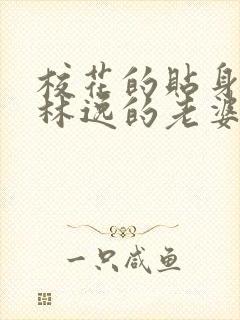 校花的貼身
林逸的老婆
一只咸鱼